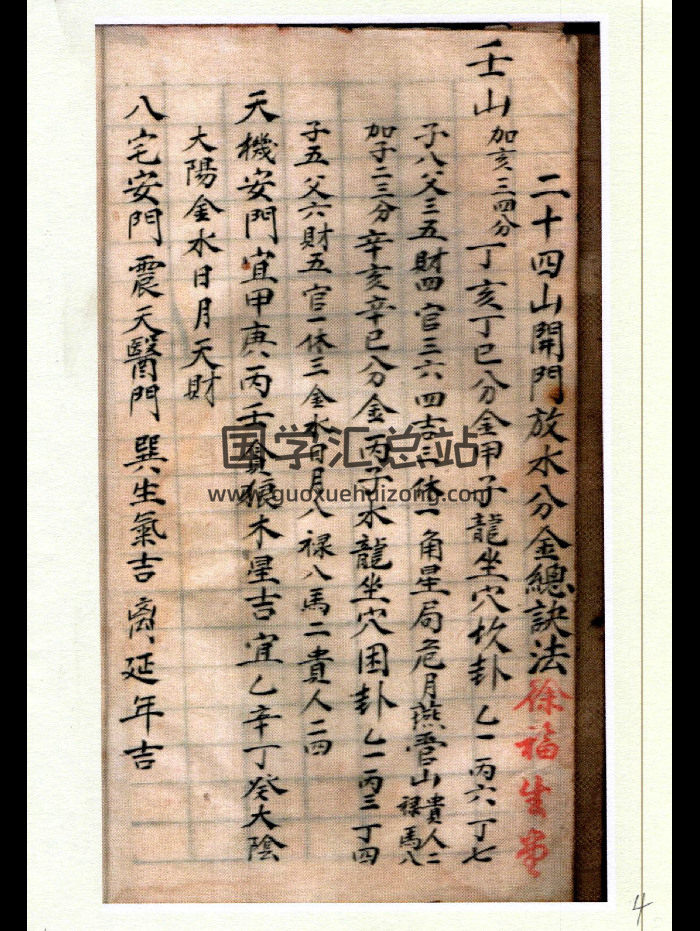 二十四山開門放水分金總訣法 徐福生堂
壬山 加亥三四分 丁亥丁巳分金甲子龍坐穴坎卦乙一丙六丁七
子八父三五財四官三六四吉三休一角星局危月燕管山 貴人二 禄馬八
加子二三分 辛亥辛巳分金丙子水龍坐穴困卦乙一丙三丁四
子五父六財五官一休三金水日月八禄八馬二貴人二四
天機安門宜甲庚丙壬貪狼木星吉宜乙辛丁癸大陰
大陽金水日月天財
八宅安門震天醫門巽生氣吉离延年吉
国学汇总站
www.guoxuehuizong.com
4